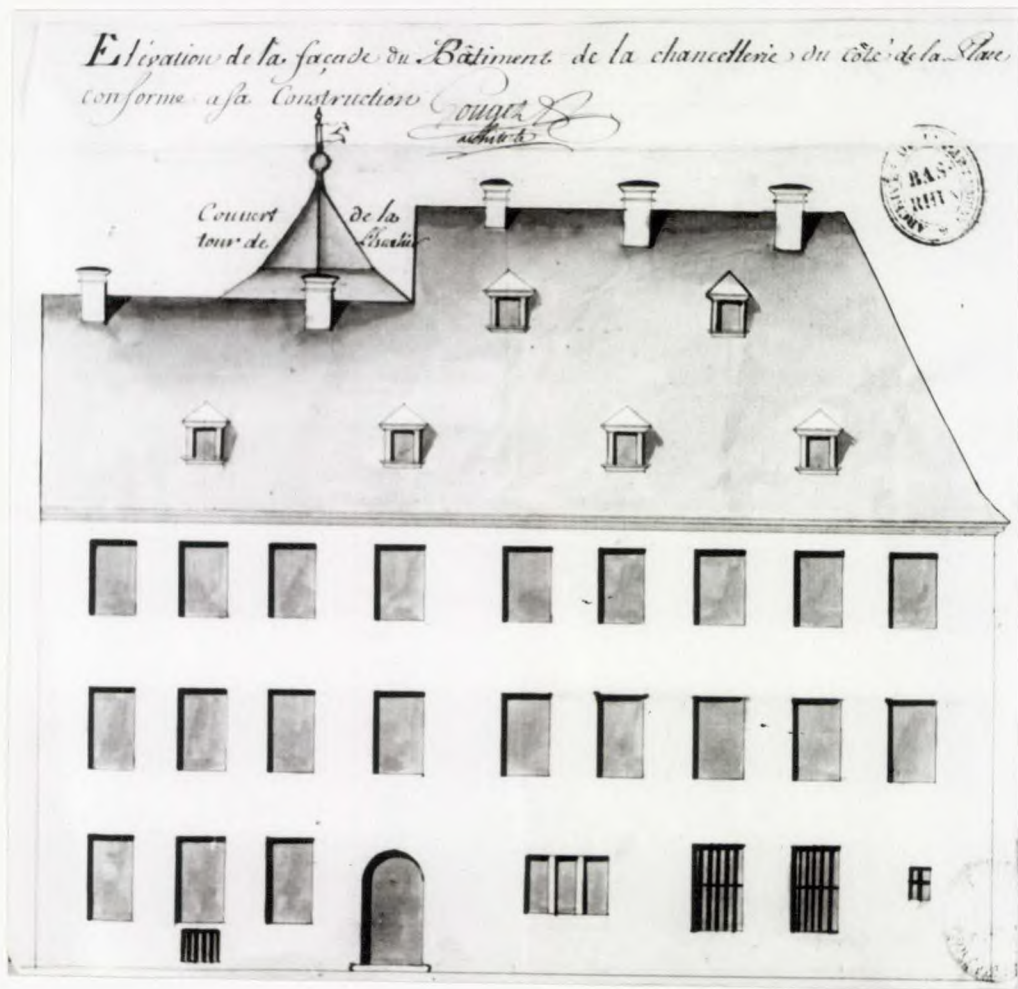 Elévation de la façade du Bâtiment de la chancellerie du côté de la Place
conforme a sa Construction
architecte
Couvert de la
tour de
ARCHIVES DU
BAS-
RHIN